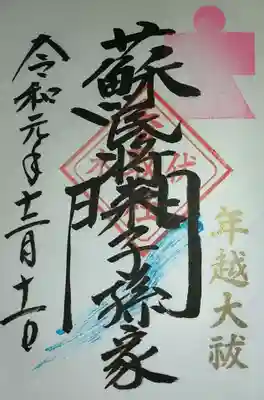 年越大祓
蘇民将来子孫家門
令和元年十二月十一日